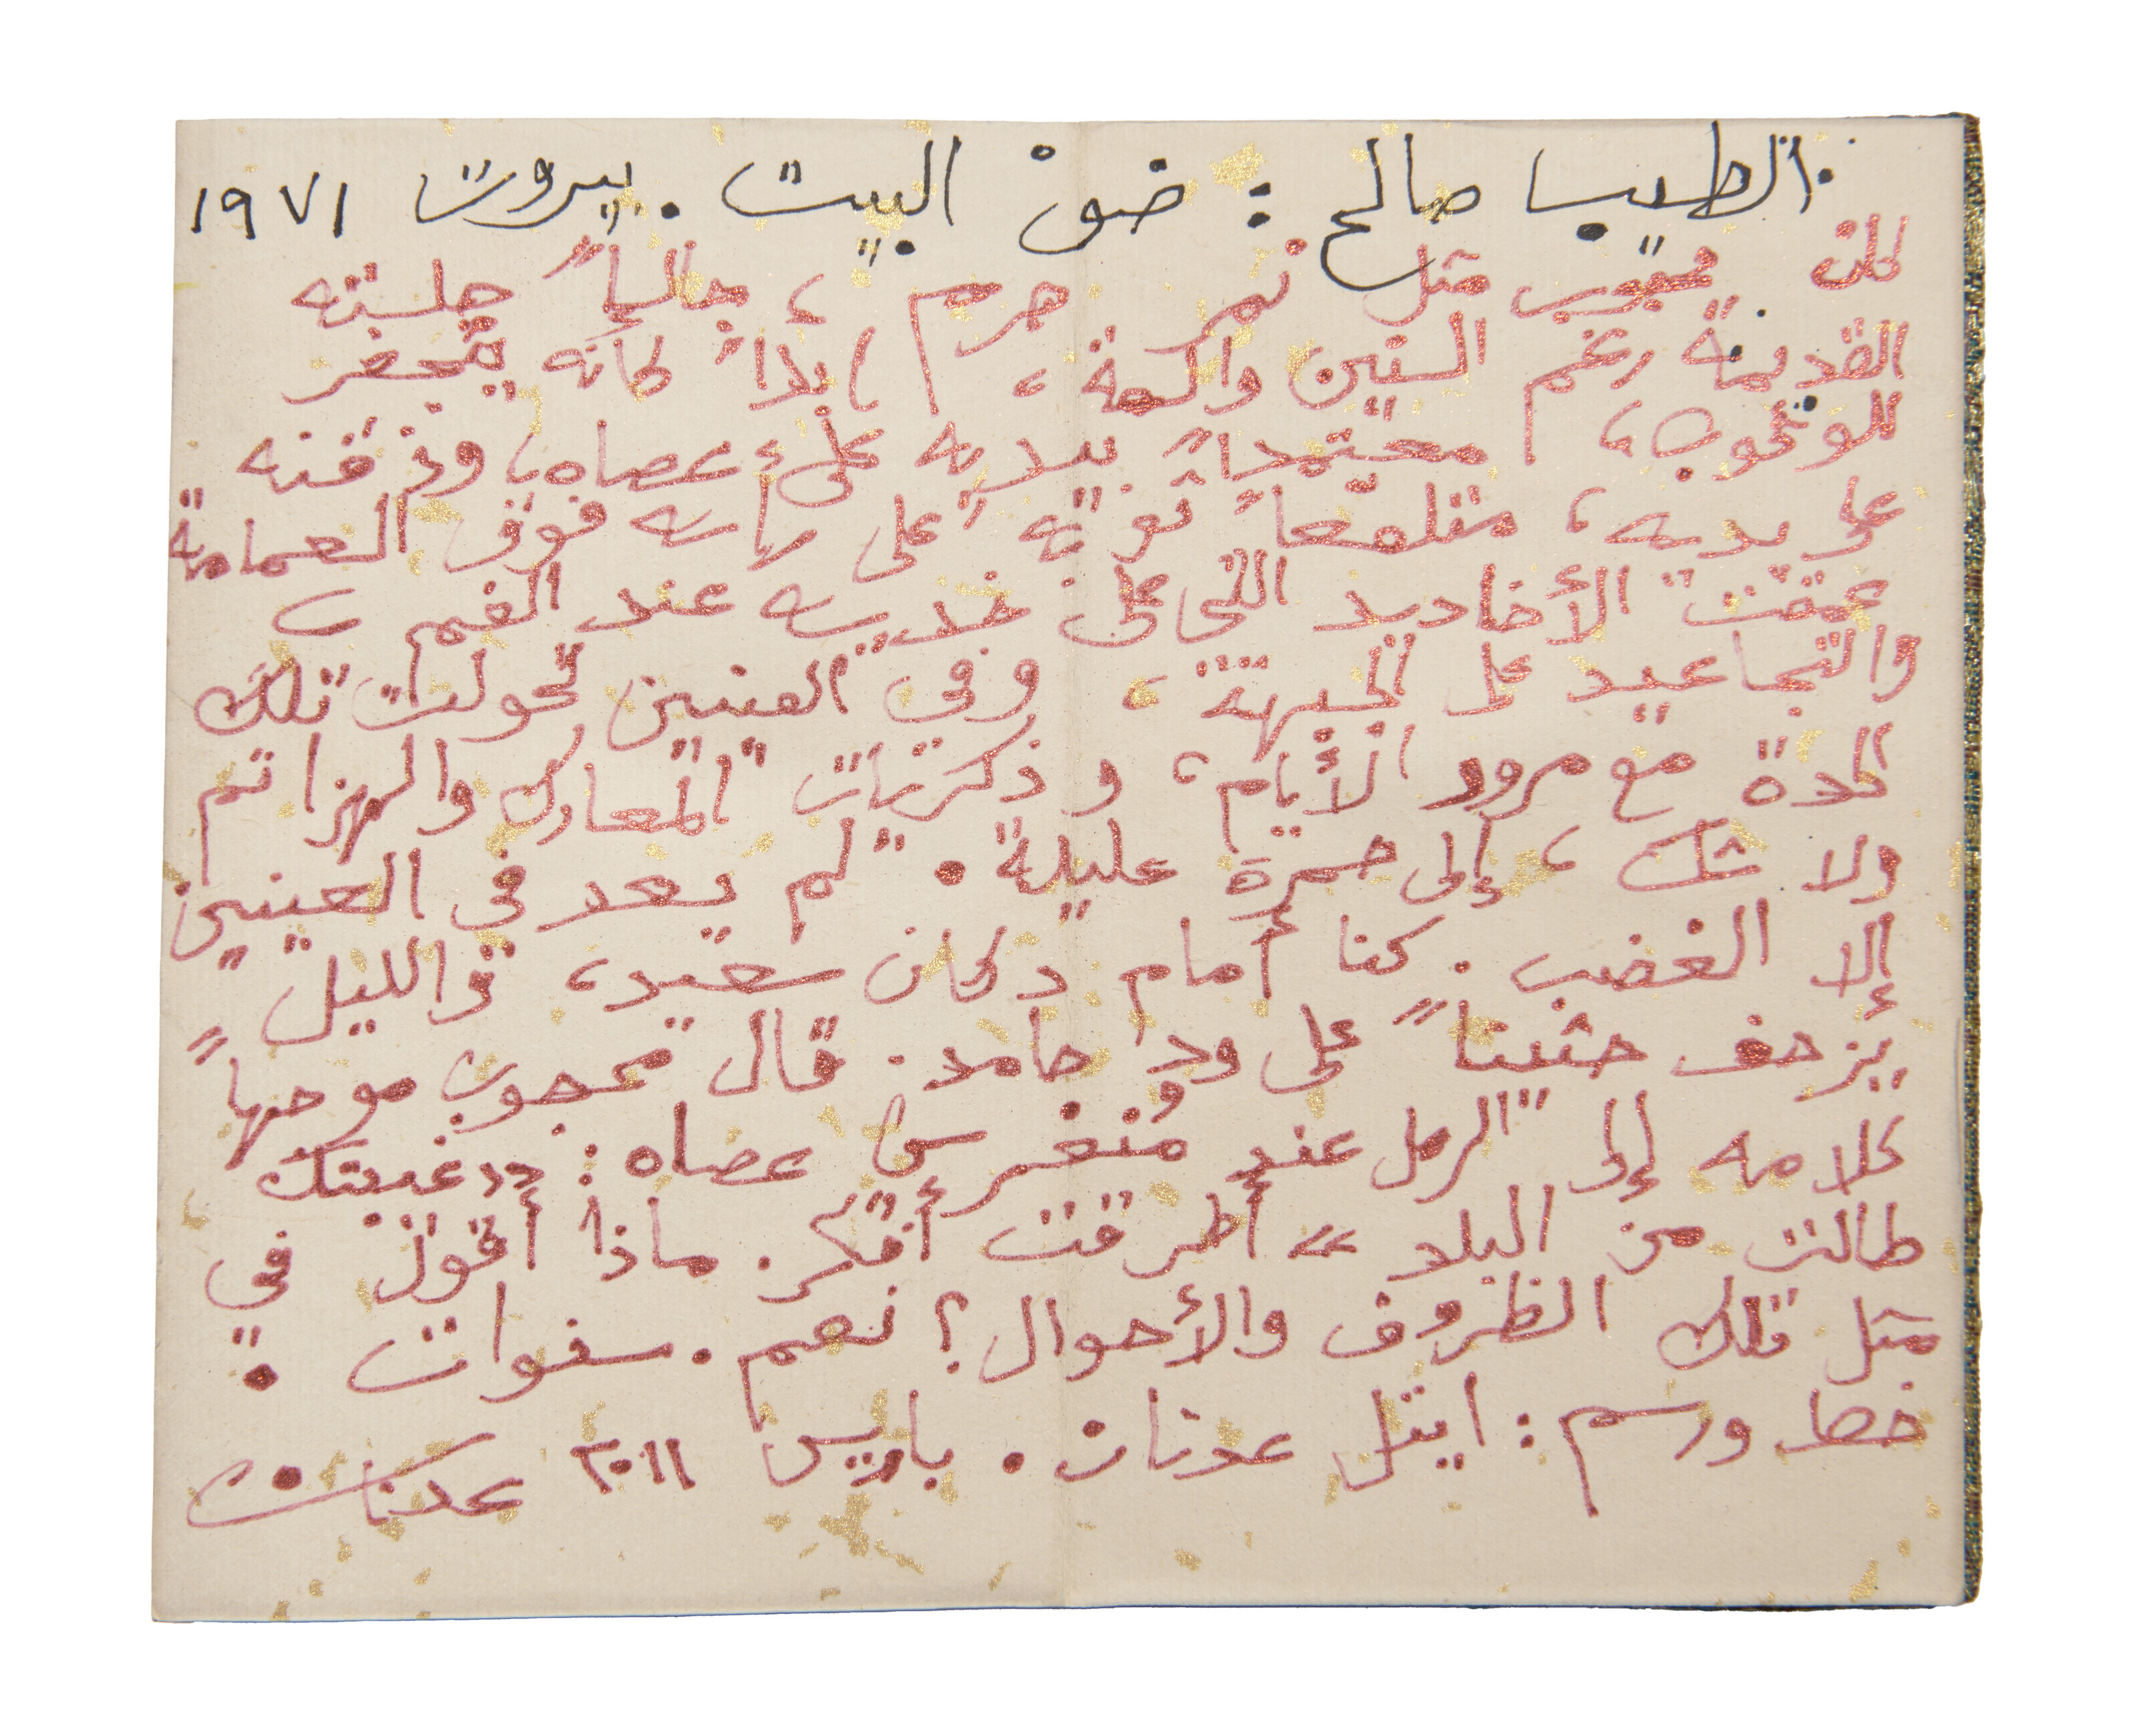 الطيب صالح : ضوْ البيت . بيروت ١٩٧١
كان محجوب مثل نمر هرم ، جالساً جلسته
القديمة رغم السنين والحمة ، أبداً كأنه يتحفز
للوثوب ، معتمداً بيديه على عصاه ، وذقنه
على يديه ، متلفعاً ثوبه على رأسه فوق العمامة
عمقت الأخاديد التي على خديه عند الفم ،
والتجاعيد على الجبهة ، وفي العينين تحولت تلك
الحدة مع مرور الأيام ، وذكريات المعارك والهزائم
ولا شك ، إلى حمرة عليلة . لم يعد في العينين
إلا الغضب . كنا أمام دكان سعيد ، والليل
يزحف حثيثاً على ود حامد . قال محجوب موجهاً
كلامه إلى الرمل عند منغرس عصاه : «غيبتك
طالت من البلد» أطرقت أفكر . ماذا أقول في
مثل تلك الظروف والأحوال ؟ نعم . سنوات .
خط ورسم : ايتل عدنان . باريس ٢٠١١ عدنان